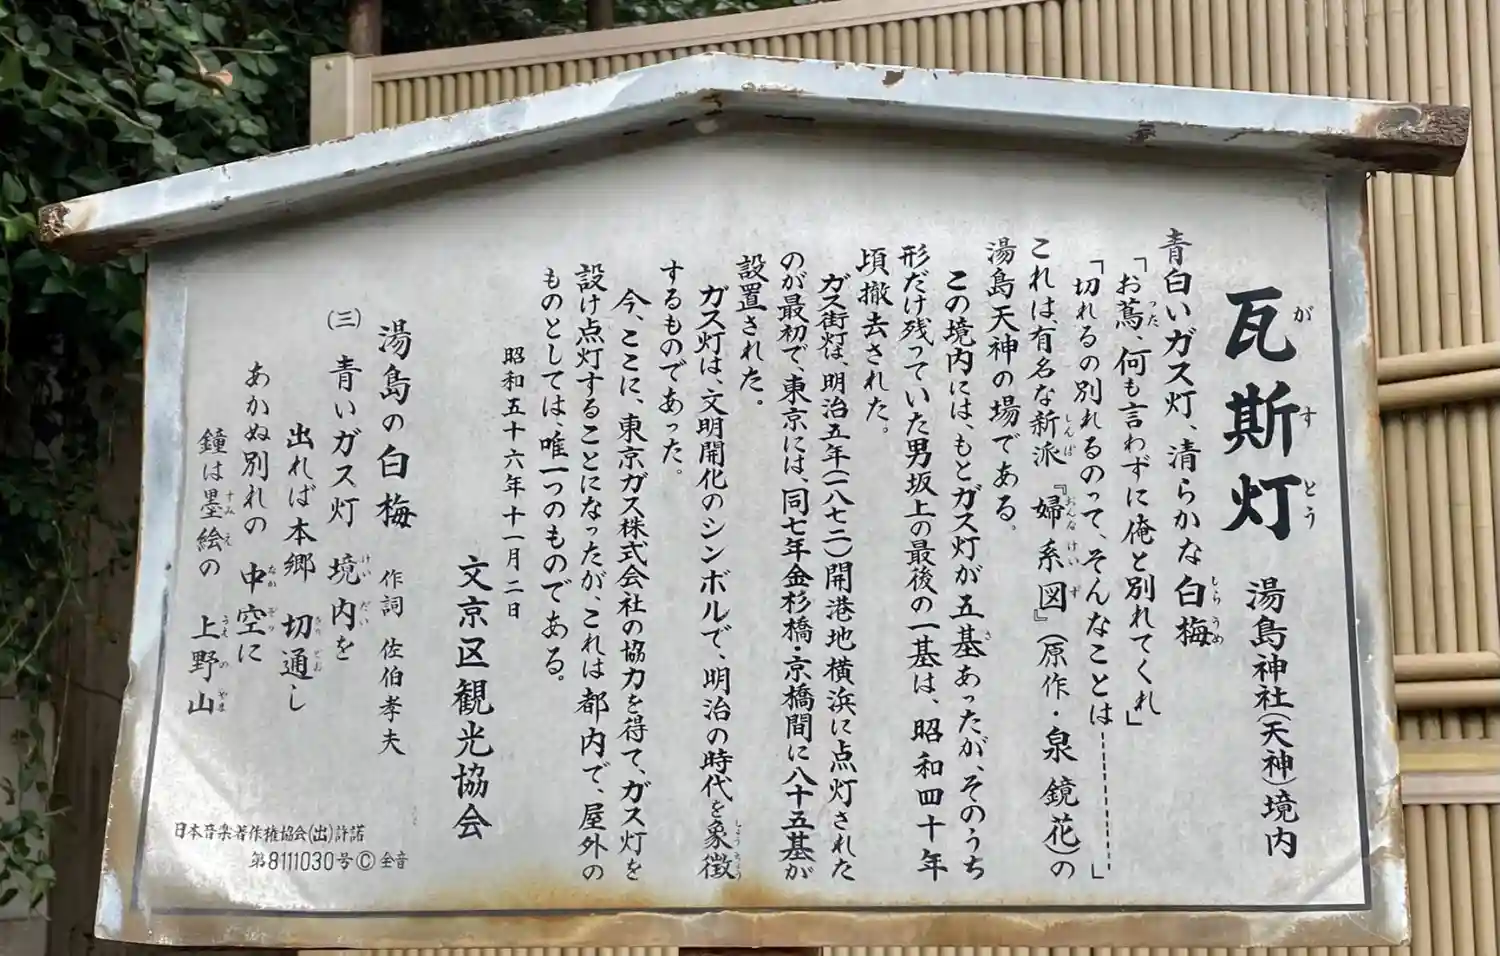 瓦斯灯 湯島神社(天神)境内
青白いガス灯、清らかな白梅
「お蔦、何も言わずに俺と別れてくれ」
「切れるの別れるのって、そんなことは――――――」
これは、有名な新派『婦系図』(原作・泉鏡花)の
湯島天神の場である。
この境内には、もとガス灯が五基あったが、そのうち
形だけ残っていた男坂上の最後の一基は、昭和四十年
頃撤去された。
ガス街灯は、明治五年(一八七二)開港地横浜に点灯された
のが最初で、東京には、同七年金杉橋・京橋間に八十五基が
設置された。
ガス灯は、文明開化のシンボルで、明治の時代を象徴
するものであった。
今、ここに、東京ガス株式会社の協力を得て、ガス灯を
設け点灯することになったが、これは都内で、屋外の
ものとしては、唯一つのものである。
昭和五十六年十一月二日
文京区観光協会
湯島の白梅 作詞 佐伯孝夫
(三) 青いガス灯 境内を
出れば本郷 切通し
あかぬ別れの 中空に
鐘は墨絵の 上野山
日本音楽著作権協会(出)許諾
第8111030号Ⓒ 全音